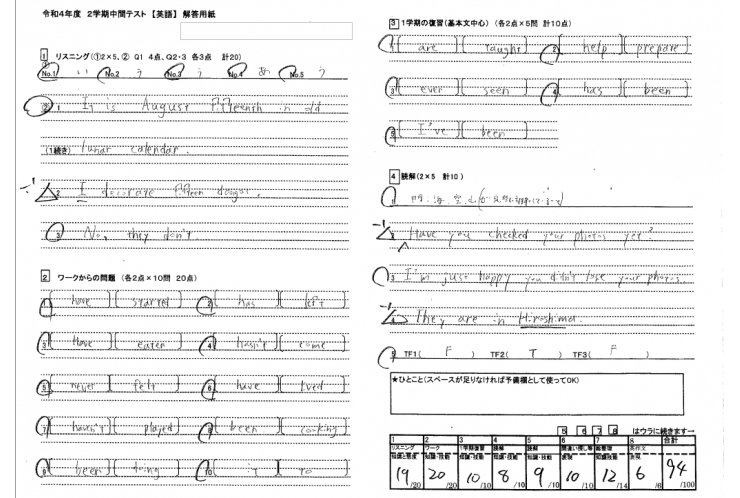 令和4年度 2学期中間テスト【英語】 解答用紙
1 リスニング(①2×5、② Q1 4点、Q2・3 各3点 計20)
No.1 い No.2 う No.3 う No.4 あ No.5 う
② 1 It is August fifteenth in old
(1続き) lunar calendar.
-1 2 I decorate fifteen dango.
3 No, they don't.
2 ワークからの問題 (各2点×10問 20点)
1 [ have ][ started ] 2 [ has ][ left ]
3 [ Have ][ eaten ] 4 [ hasn't ][ come ]
5 [ never ][ felt ] 6 [ have ][ lived ]
7 [ haven't ][ played ] 8 [ been ][ cooking ]
9 [ been ][ ] 10 [ it ][ to ]
3 1学期の復習(基本文中心) (各2点×5問 計10点)
1 [ are ][ taught ] 2 [ help ][ prepare ]
3 [ ever ][ seen ] 4 [ has ][ been ]
5 [ I've ][ been ]
4 読解(2×5 計10)
1
-1 2 Have you checked your photos yet?
3 I'm just happy you didn't lose your photos.
-1 4 They are in Hiroshima.
5 TF1( F ) TF2( T ) TF3( F )
★ひとこと(スペースが足りなければ予備欄として使ってOK)
5 6 7 8 はウラに続きます→
1 2 3 4 5 6 7 8 合計
リスニング ワーク 1学期復習 読解 読解 間違い探し等 英作文
知識・技能 知識・技能 知識・技能 表現 知識技能 表現
19 20 10 8 9 10 12 6 94
/20 /20 /10 /10 /10 /10 /14 /6 /100